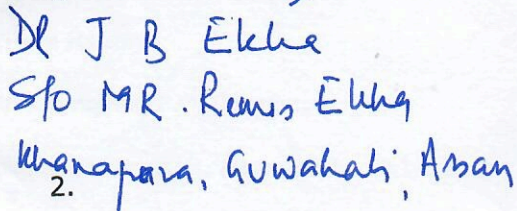 Dr J B Ekka
S/o MR. Remis Ekka
Khanapara, Guwahati, Assam
2.